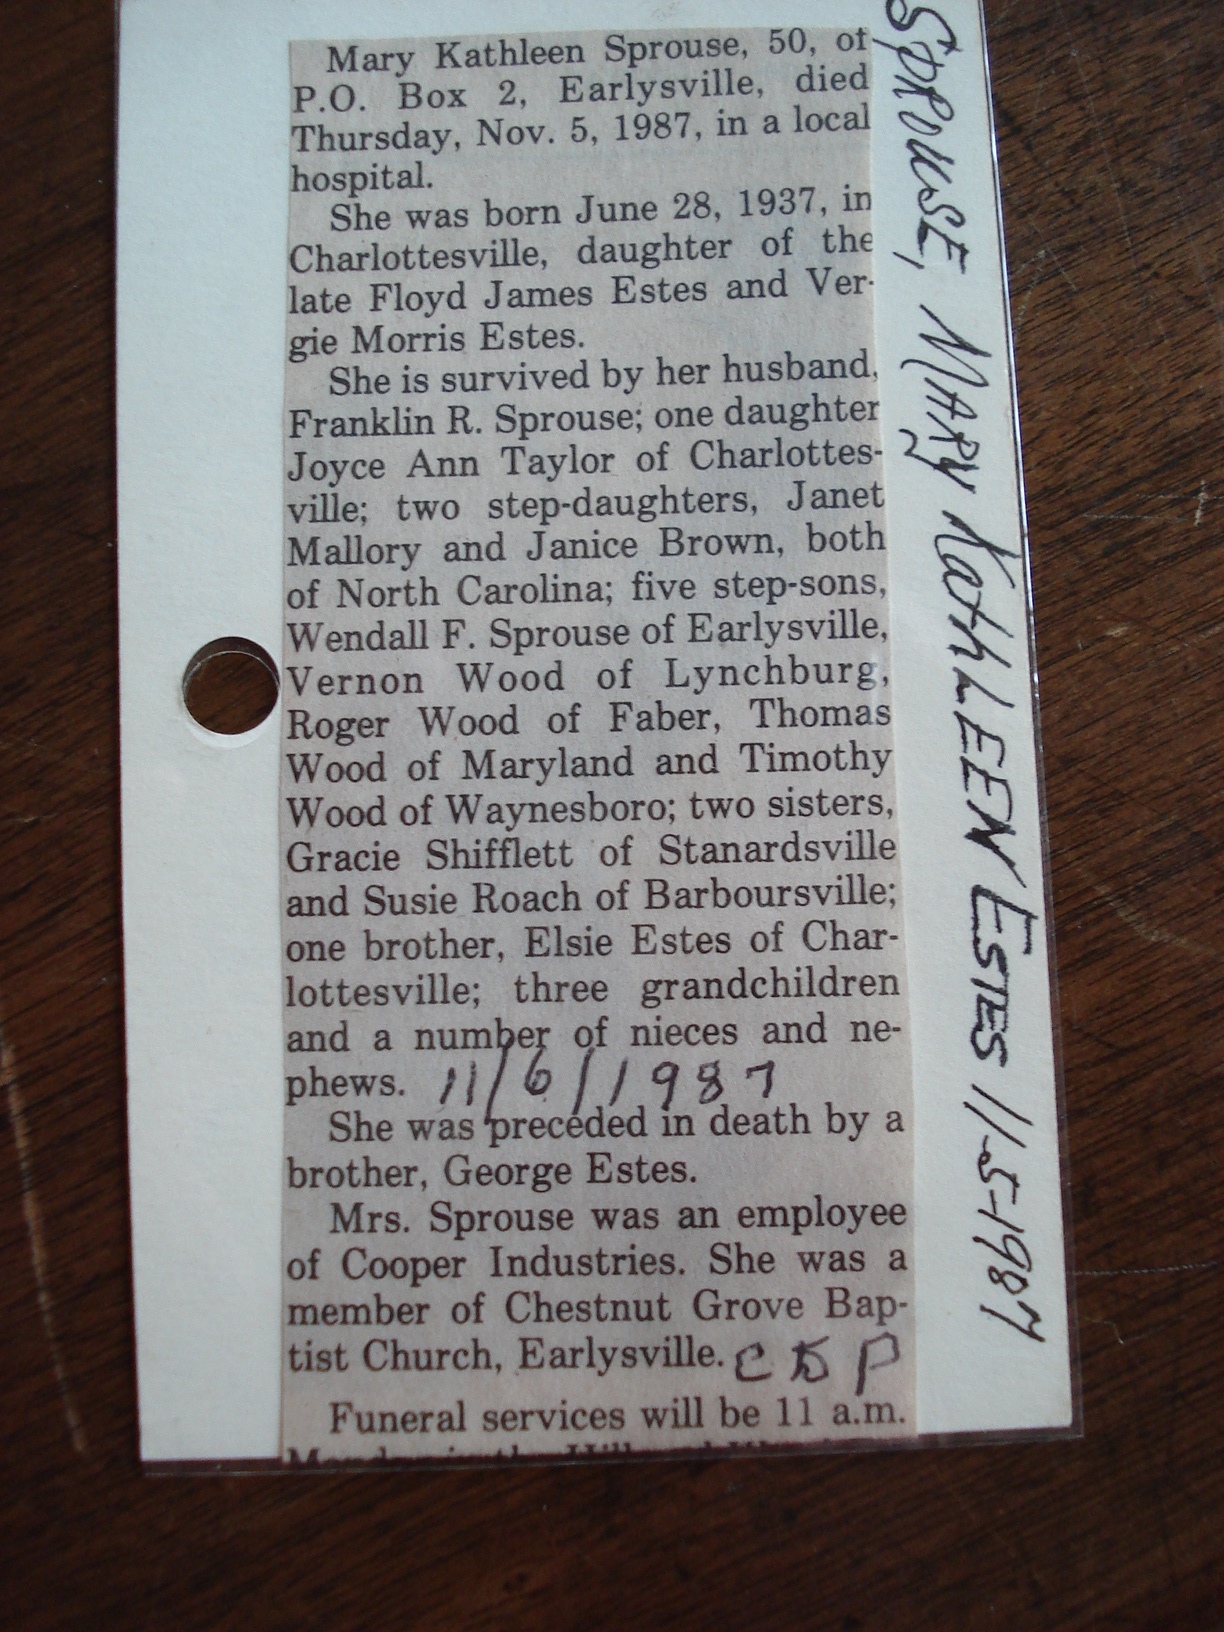 Mary Kathleen Sprouse, 50, of
P.O. Box 2, Earlysville, died
Thursday, Nov. 5, 1987, in a local
hospital.
She was born June 28, 1937, in
Charlottesville, daughter of the
late Floyd James Estes and Ver-
gie Morris Estes.
She is survived by her husband,
Franklin R. Sprouse; one daughter
Joyce Ann Taylor of Charlottes-
ville; two step-daughters, Janet
Mallory and Janice Brown, both
of North Carolina; five step-sons,
Wendall F. Sprouse of Earlysville,
Vernon Wood of Lynchburg,
Roger Wood of Faber, Thomas
Wood of Maryland and Timothy
Wood of Waynesboro; two sisters,
Gracie Shifflett of Stanardsville
and Susie Roach of Barboursville;
one brother, Elsie Estes of Char-
lottesville; three grandchildren
and a number of nieces and ne-
phews. 11/6/1987
She was preceded in death by a
brother, George Estes.
Mrs. Sprouse was an employee
of Cooper Industries. She was a
member of Chestnut Grove Bap-
tist Church, Earlysville. CDP
Funeral services will be 11 a.m.
SPROUSE, MARY KathLEEN ESTES 11-5-1987